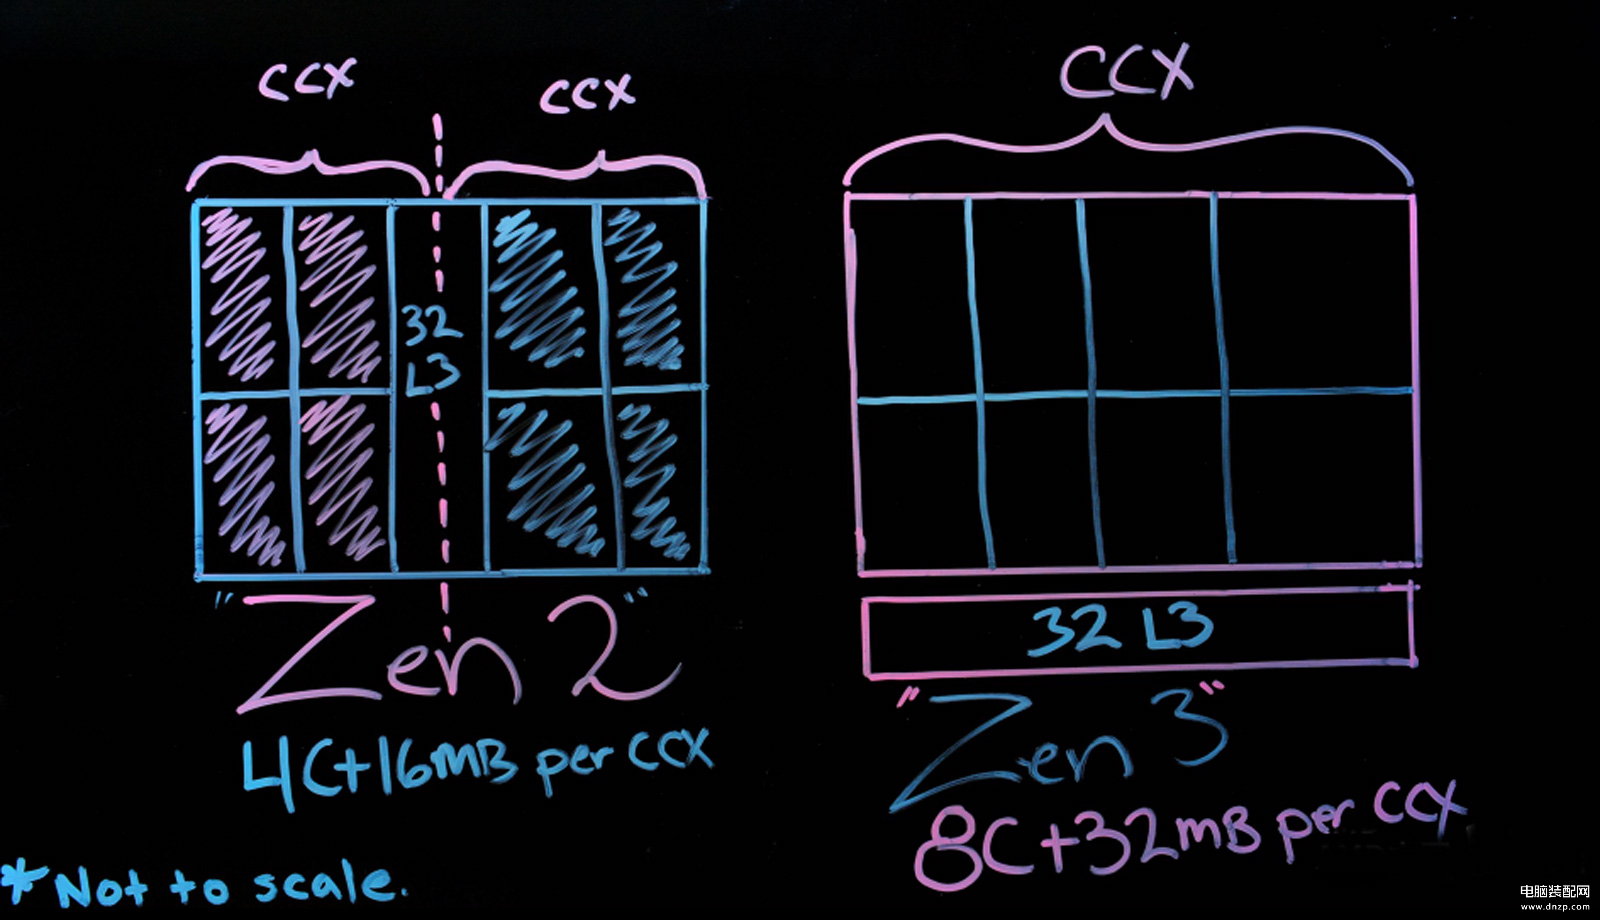 CCX
CCX
32
L3
"Zen 2"
4C+16MB per CCX
CCX
32 L3
"Zen 3"
8C+32MB per CCX
*Not to scale.
电脑装配网
www.dnzp.com